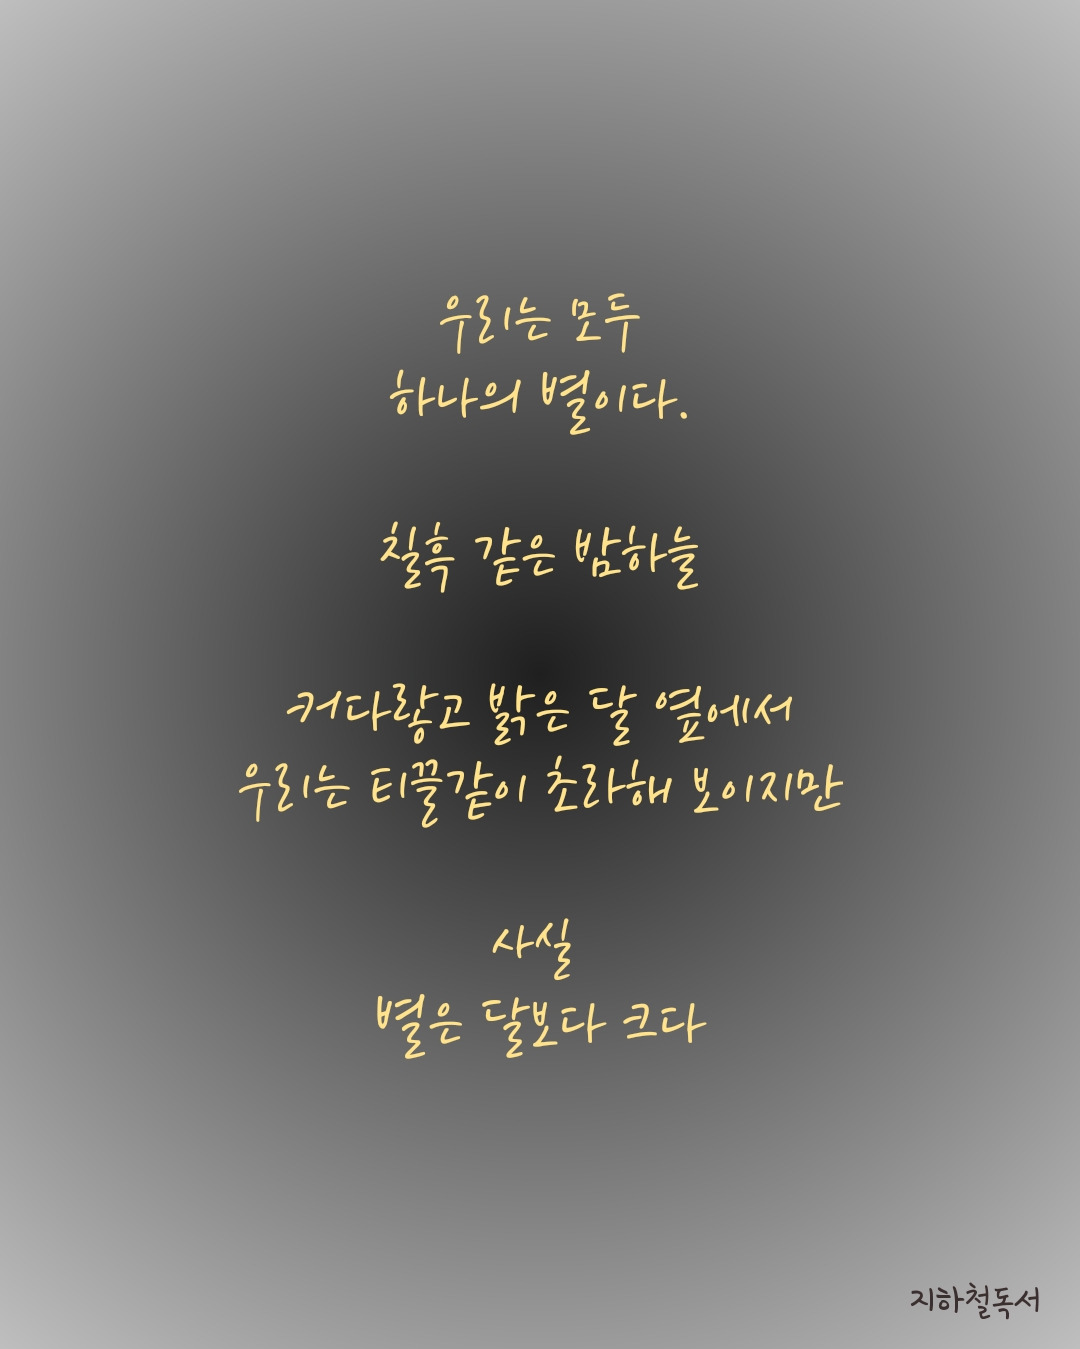 우리는 모두
하나의 별이다.
칠흑 같은 밤하늘
커다랗고 밝은 달 옆에서
우리는 티끌같이 초라해 보이지만
사실
별은 달보다 크다
지하철독서